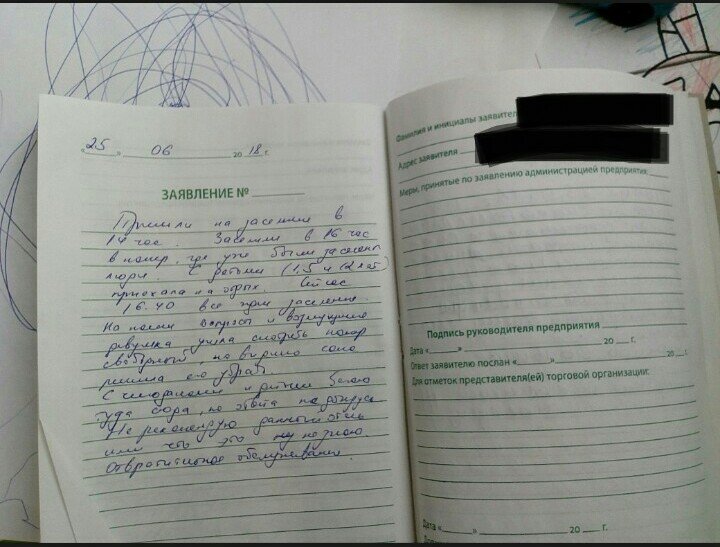 «25» 06 2018 г.
ЗАЯВЛЕНИЕ № 
Пришли на заселение в
14 час. Заселили в 16 час
в номер, где уже были заселены
люди. С детьми (1,5 и 12 лет)
приехала на отдых. Сейчас
16.40 все ждем заселение.
На полные вопросы и возмущение
девушка ушла смотреть номер
свободный
решила его убрать.
С чемоданами и детьми бегаю
туда сюда, но ответа не добьюсь
Не рекомендую данный отель
или что это ну не знаю.
Отвратительное обслуживание.
Фамилия и инициалы заявител
Адрес заявителя
Меры, принятые по заявлению администрацией предприятия:
Подпись руководителя предприятия
Дата «___»___ 20__ г.
Ответ заявителю послан «___»___ 20__ г.
Для отметок представителя(ей) торговой организации:
Дата «___»___ 20__ г.